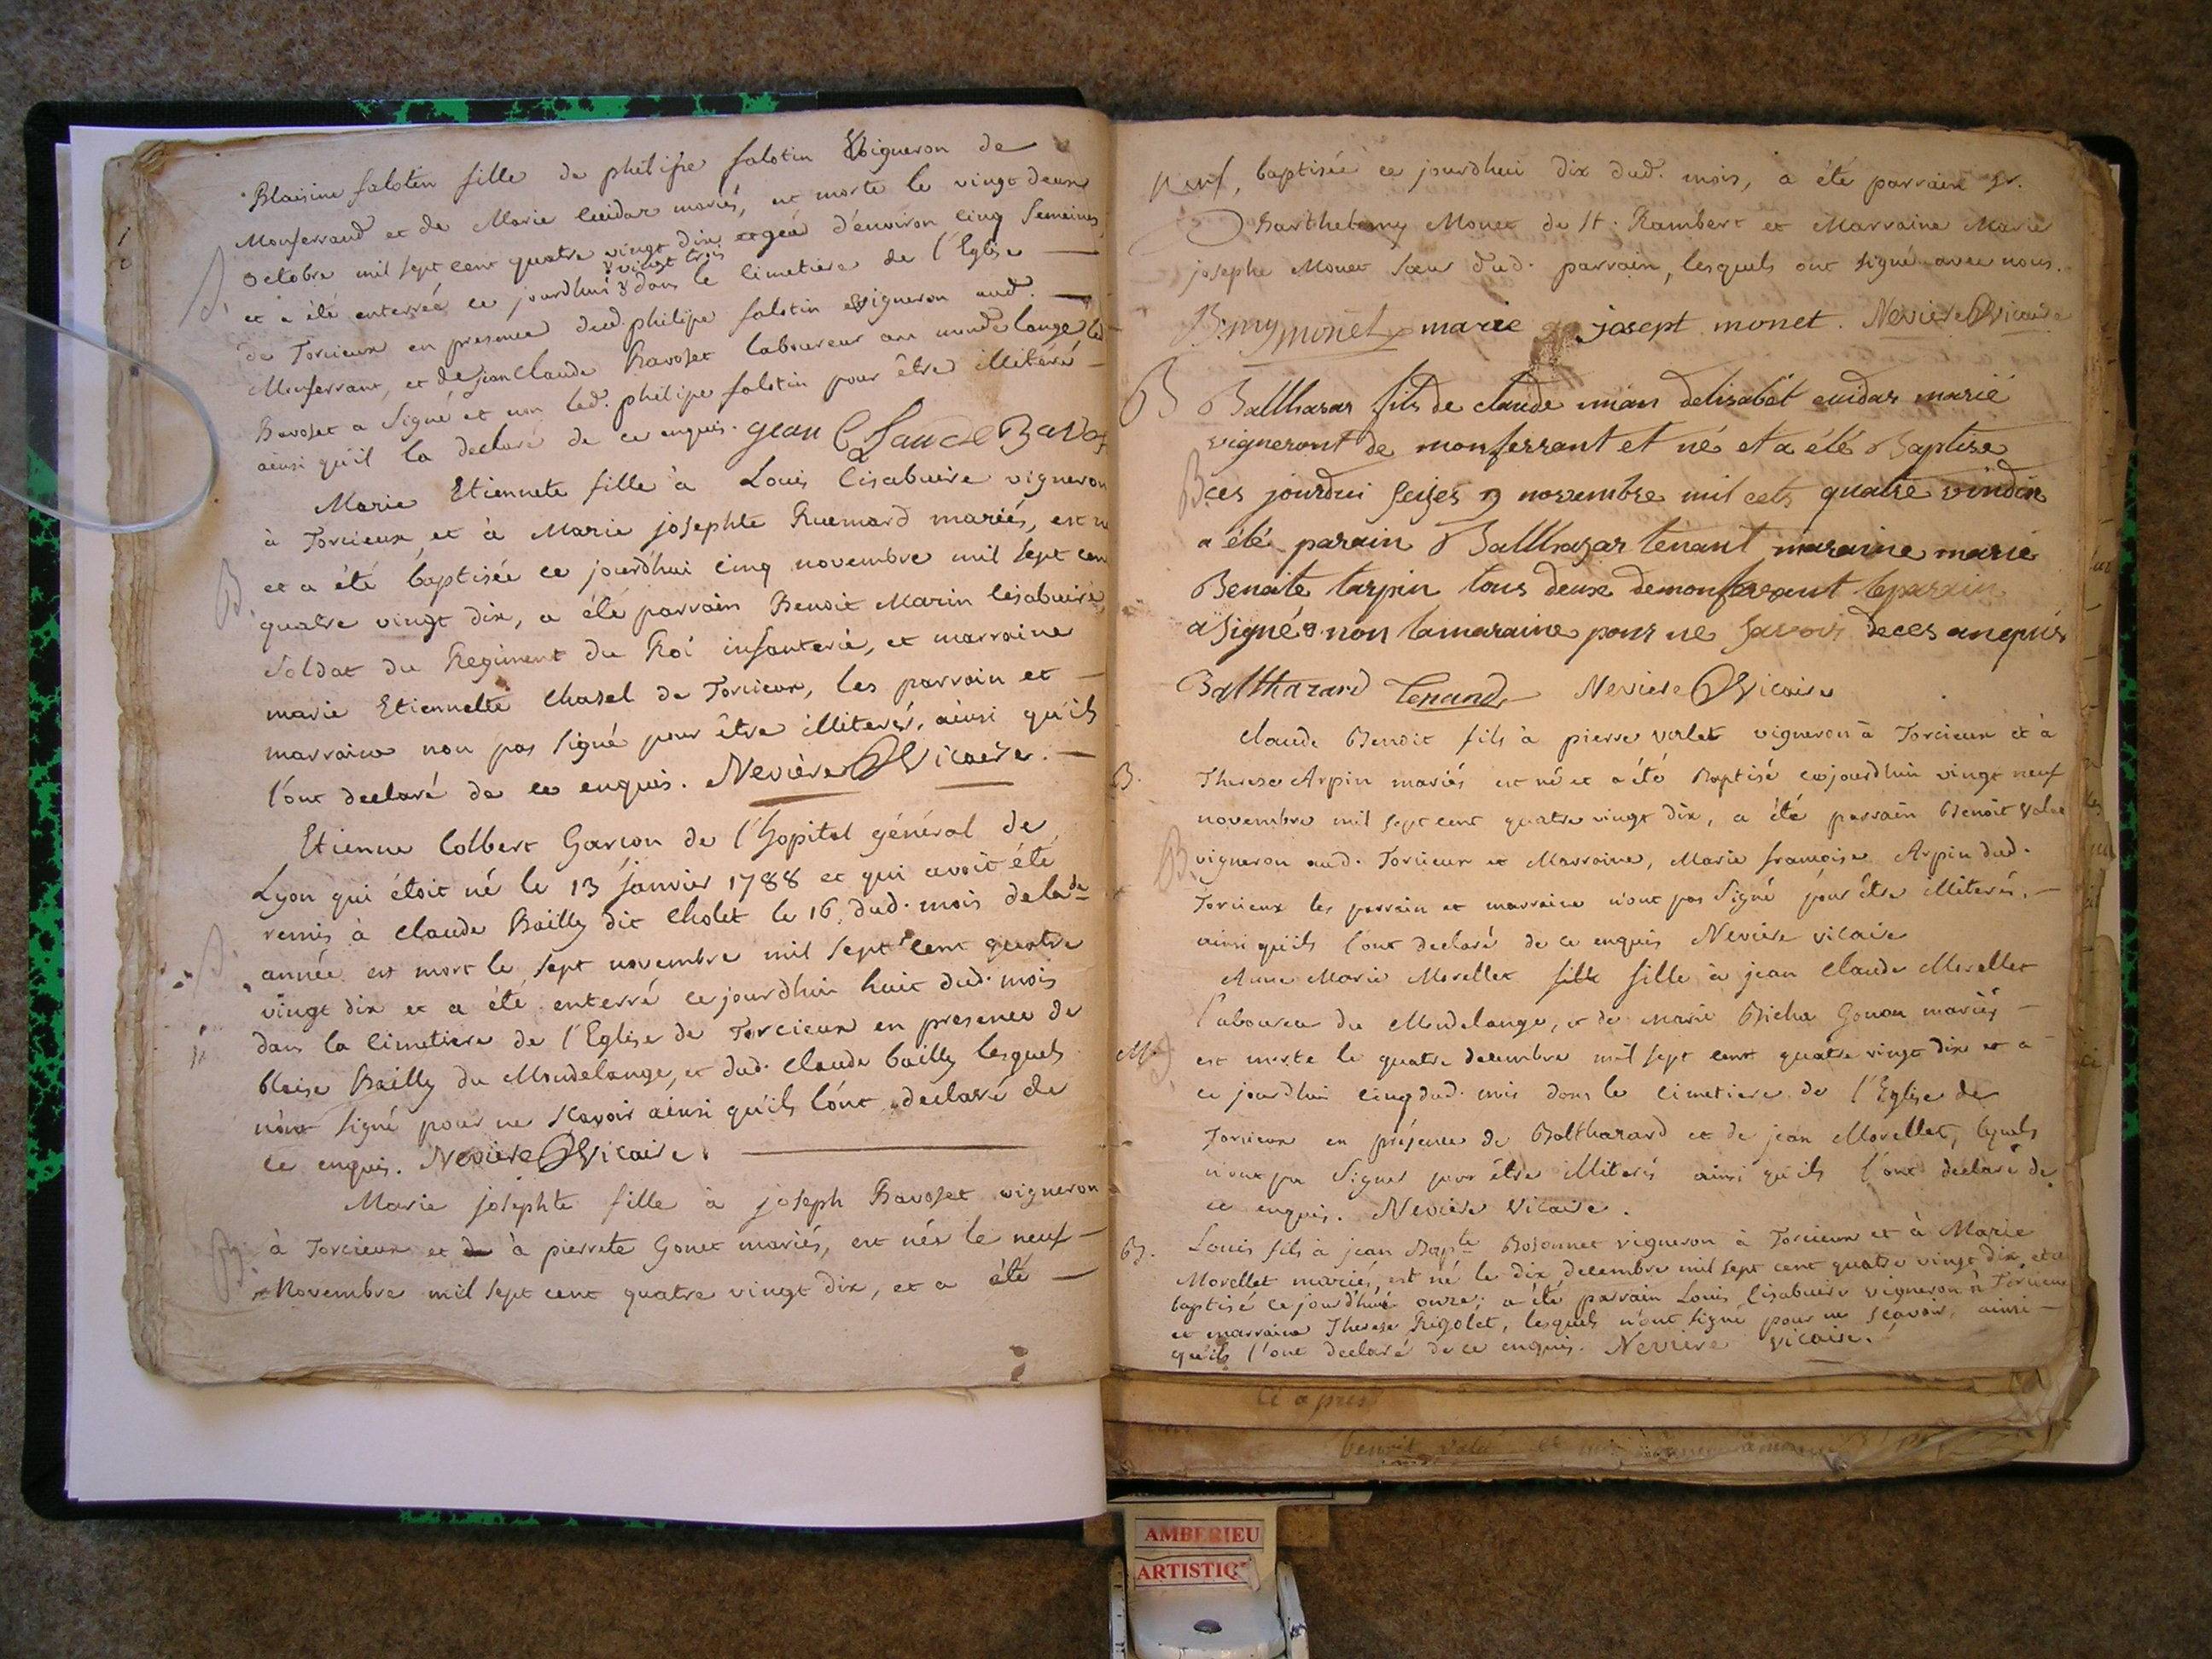 Blaisine falotin fille de philipe falotin vigneron de
Monferrand et de Marie cuidar mariés, est morte le vingt deux
octobre mil sept cent quatre vingt dix agée d'environ cinq Semeines
et a été enterrée ce jourdhui vingt trois dans le cimetiere de l'Eglise
de Torcieux en presence dud. philipe falotin vigneron aud.
Monferrant, et de jean Claude Ravoset laboureur au mondelange, led
Ravoset a Signé et non led. philipe falotin pour être illitéré
ainsi qu'il la declaré de ce enquis. gean Claude Ravos
Marie Etiennete fille à Louis Cisabuire vigneron
à Torcieux, et à Marie josephte Ruemard mariés, est n
et a été baptisée ce jourdhui cinq novembre mil sept cen
B. quatre vingt dix, a été parrain Benoit Marin Cisabuire,
Soldat du Regiment du Roi infanterie, et marraine
marie Etiennette Chasel de Torcieux, les parrain et
marraine non pas signé pour être illiterés, ainsi qu'ils
l'ont declaré de ce enquis. Neviere Vicaire.
Etienne Colbert Garcon de l'hopital général de
Lyon qui étoit né le 13 janvier 1788 et qui avoit été
remis à claude Bailly dit Cholet le 16. dud. mois de lade
année est mort le sept novembre mil sept cent quatre
vingt dix et a été enterré cejourdhui huit dud. mois
dans la cimetiere de l'Eglise de Torcieux en presence de
blaise Bailly du Mondelange, et dud. claude bailly lesquels
n'ont signé pour ne scavoir ainsi qu'ils l'ont declaré de
ce enquis. Neviere Vicaire.
Marie josephte fille à joseph Ravoset vigneron
B. à Torcieux et à pierrete Gonet mariés, est née le neuf
Novembre mil sept cent quatre vingt dix, et a été
baptisée ce jourdhui dix dud. mois, a été parrain sr.
Barthelemy Monet de St. Rambert et Marraine Marie
josephe Monet soeur dud. parrain, lesquels ont signé avec nous.
Bmy monet marie josept monet. Neviere Vicaire
B Balthasar fils de claude mian delisabét cuidar marié
vigneront de monferrant et né et a été Baptise
B ces jourdui seises 9 novembre mil cets quatre vindix
a été parain Balthazar tenant maraine marie
Benoite tarpin tous deux demonferrant leparain
a signé non lamaraine pour ne savoir deces anequis
Balthazard tenand Neviere Vicaire
claude Benoit fils à pierre valet vigneron à Torcieux et à
B. Therese Arpin mariés est né et a été Baptisé cejourdhui vingt neuf
novembre mil sept cent quatre vingt dix, a été parrain Benoit Valet
B. vigneron aud. Torcieux et Marraine, Marie francoise Arpin dud.
Torcieux les parrain et marraine n'ont pas Signé pour être illiterés,
ainsi qu'ils l'ont declaré de ce enquis Neviere vicaire
Anne Marie Morellet fille à jean claude Morellet
laboureur du Mondelange, et de marie Gonon mariés
M. est morte le quatre decembre mil sept cent quatre vingt dix et a
ce jourdhui cinq dud. mois dans le cimetiere de l'Eglise de
Torcieux en présence de Balthazard et de jean Morellet, lequels
n'ont pu Signer pour être illiterés ainsi qu'ils l'ont declaré de
ce enquis. Neviere Vicaire.
B. Louis fils à jean Baple Bosonnet vigneron à Torcieux et à Marie
Morellet mariés, est né le dix decembre mil sept cent quatre vingt dix, et a
baptisé ce jourd'hui onze; a été parrain Louis Cisabuire vigneron à Torcieux
et marraine Therese Rigolet, lesquels n'ont signé pour ne scavoir, ainsi
qu'ils l'ont declaré de ce enquis. Neviere vicaire.
Ci apres
benoit valet
AMBERIEU
ARTISTIQ